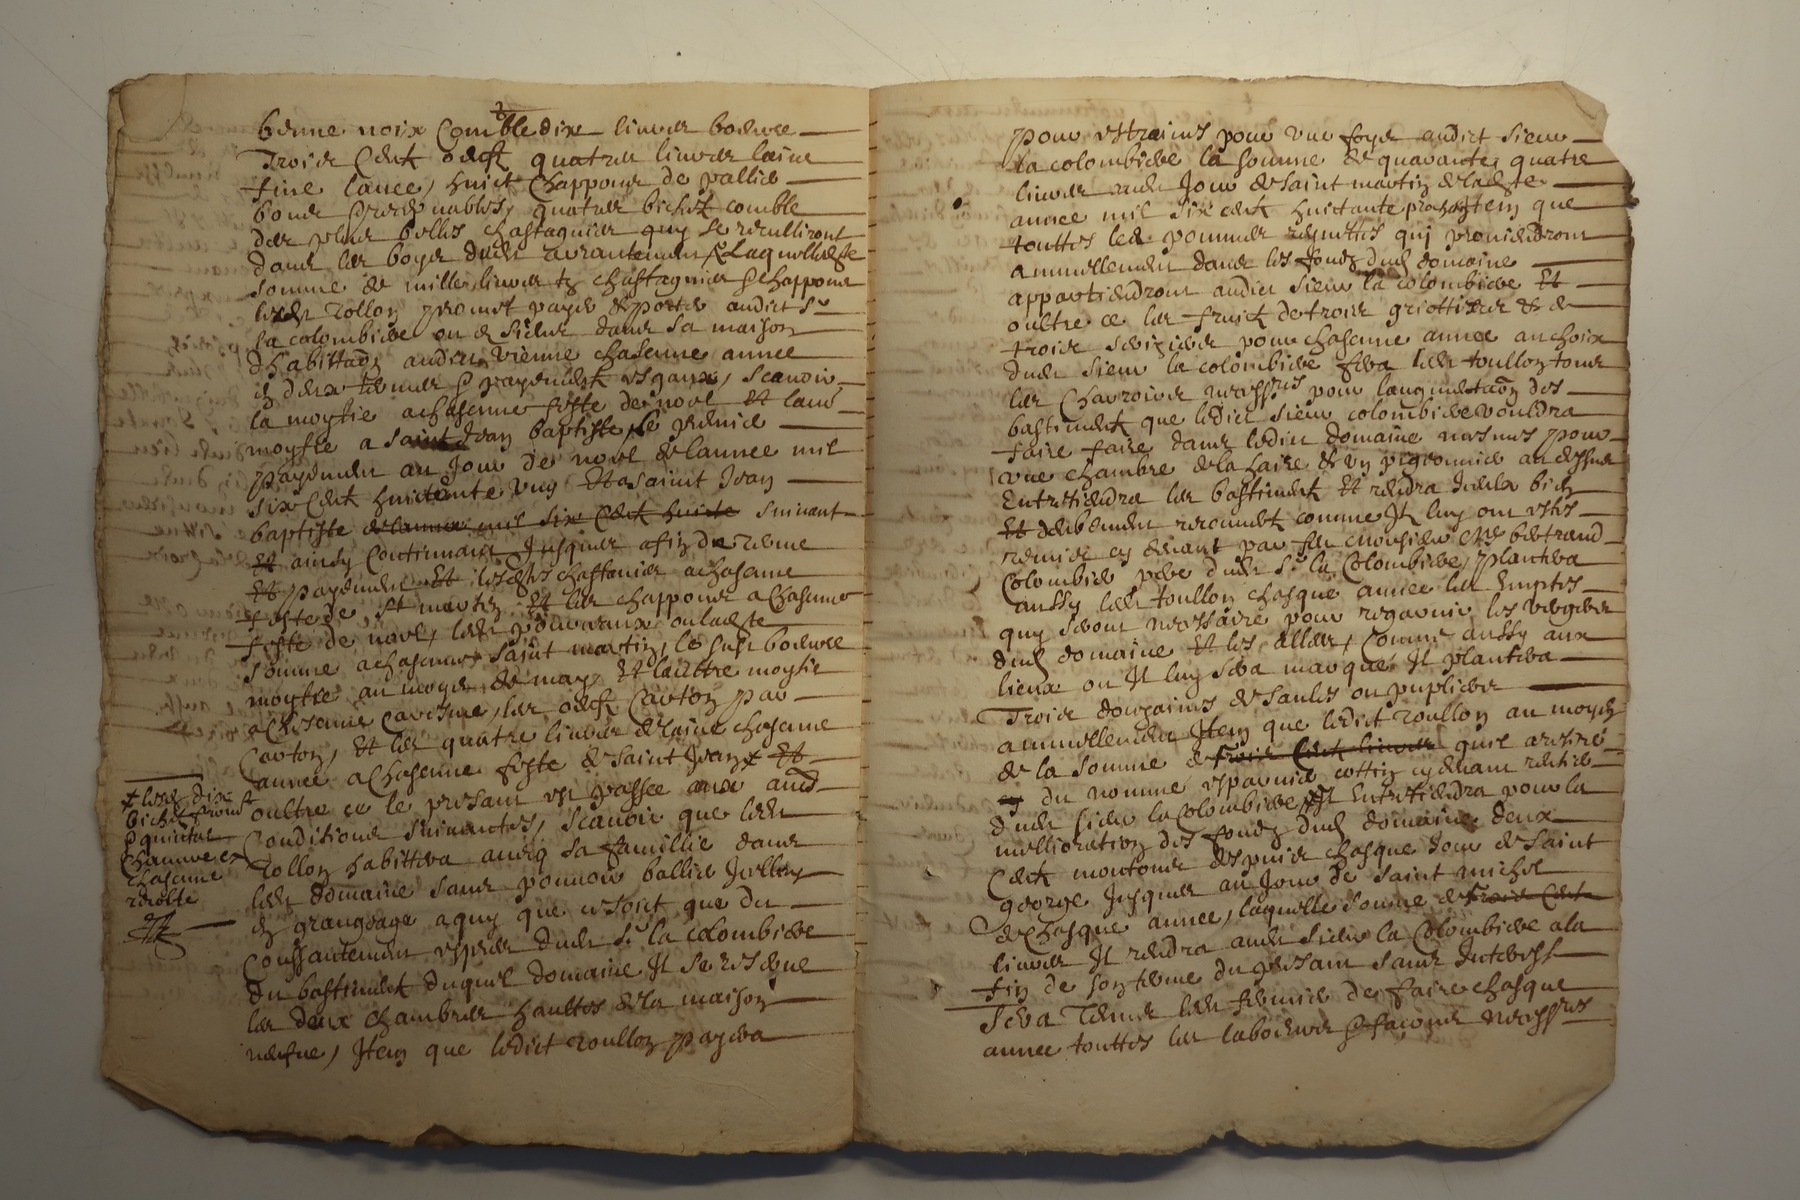 bonne noix comble dix livres beurre
Trois cent œufs quatre livres laine
fine lavee, huict chappons de pallie
bons & prenables, quatre bichets comble
des plus belles chastagnies quy se reculliront
dans les boys dudit arrantement Laquelle dte
somme de mille livres chastagnies & chappons
ledit Rollon promet payer & porter audict Sr
la colombiere ou es siens dans sa maison
dhabittaon audict vienne chascune annee
en deux termes & payements esgaux, scavoir
la moytie a chascune feste de noel et lautre
moytie a saint Jean baptiste, le premier
payement au Jour de noel de lannee mil
six cent huictante ung Et a saint Jean
baptiste de lannee mil six cent huicte suivant
et ainsy continuant Jusques a fin de terme
Et payement Et lesdtes chastanies a chascune
feste de st martin Et les chappons a chascune
feste de noel, ledit
somme a chascune saint martin, le susd beurre
moytie au moys de may Et laultre moytie
a chascune caresme, les œufs carton par
carton, Et les quatre livres de laine chascune
annee a chascune feste de saint Jean Et
oultre ce le present est passee aux aud
Conditions suivantes, scavoir que ledit
Rollon habittera avecq sa famillie dans
ledit domaine sans pouvoir ballier Icelluy
en grangeage a quy que ce soict que du
consantement expres dudit Sr la colombiere
du bastiment duquel domaine Il se reserve
les deux chambres haultes de la maison
neufve, Item que ledict roullon payera
lesd dix
bichets fromt
& quintal
chanvre en
chascune
recolte
pour estraines pour une foys audict sieur
la colombiere la somme de quarante quatre
livres audit Jour de saint martin de ladte
annee mil six cent huictante Item que
touttes les pommes reynettes quy proviendront
annuellement dans les fondz dud domaine
appartiendront audict sieur la colombiere Et
oultre ce les fruict de trois griottiers & de
trois serizier pour chascune annee au choix
dudit sieur la colombiere fera ledit roullon tous
les charrois necessres pour laugmentaon des
bastiments que ledict sieur colombiere vouldra
faire faire dans ledict domaine mesmes pour
une chambre de la haire & un pigeonnier au dessus
Entretiendra les bastiments Et rendra Iceulx bien
Et deubement recouverts comme Il luy ont estes
remis cy devant par feu monsieur Me bertrand
Colombier pere dudit Sr la Colombiere, plantera
aussy ledit roullon chasque annee les Emptes
quy seront necessaire pour regarnir les vergiers
dud domaine Et les allees, Comme aussy aux
lieux ou Il luy sera marque Il plantera
Trois douzaines de saules ou pupliers
annuellement Item que ledict roullon au moyen
de la somme de trois cent livres quil
du nomme cottin cy devant rentier
dudit sieur la Colombiere, Il Entretiendra pour la
mellioration des fondz dud domaine deux
cent moutons despuis chasque Jour de saint
george Jusques au Jour de saint michel
de chasque annee, laquelle somme de trois cent
livres Il rendra audit sieur la Colombiere a la
fin de son terme du present sans Interest
Sera Tenu ledit fermier de faire chasque
annee touttes les labeures & façons necessres